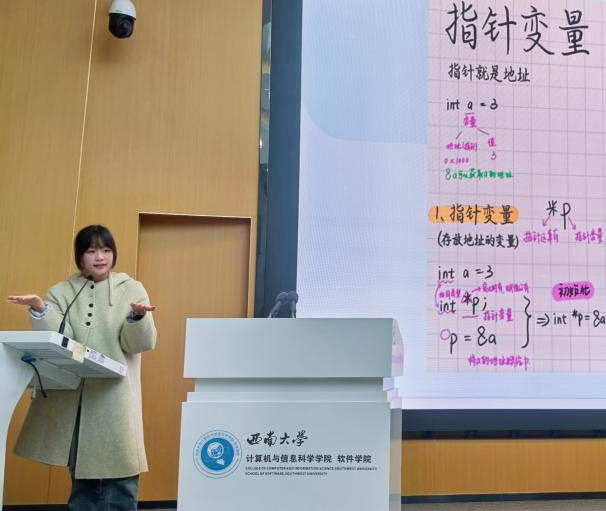 指针变量
指针就是地址
int a = 3
变量
值
0x1000
3
1、指针变量
*p
(存放地址的变量)
指针变量
int a = 3
初始化
int *p;
指针变量
⇒ int *p = &a
p = &a
西南大学
计算机与信息科学学院 软件学院
COLLEGE OF COMPUTER AND INFORMATION SCIENCE, SOUTHWEST UNIVERSITY
SCHOOL OF SOFTWARE, SOUTHWEST UNIVERSITY